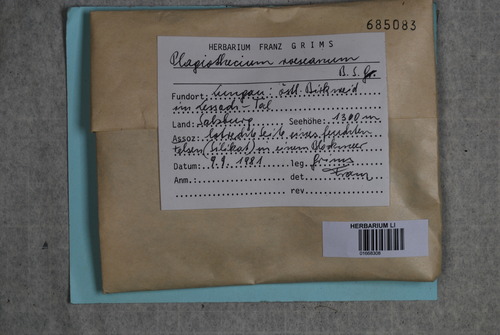 685083
HERBARIUM FRANZ GRIMS
Plagiothecium roeseanum
B.S.G.
Fundort: Lungau: östl.
im Lessach-Tal
Land: Salzburg Seehöhe: 1300 m
Assoz: eines feuchten
Felsen (Silikat) in einem Blockmeer
Datum: 9.9.1981 leg. Grims
Anm. det. Franz
rev.
HERBARIUM LI
01668308